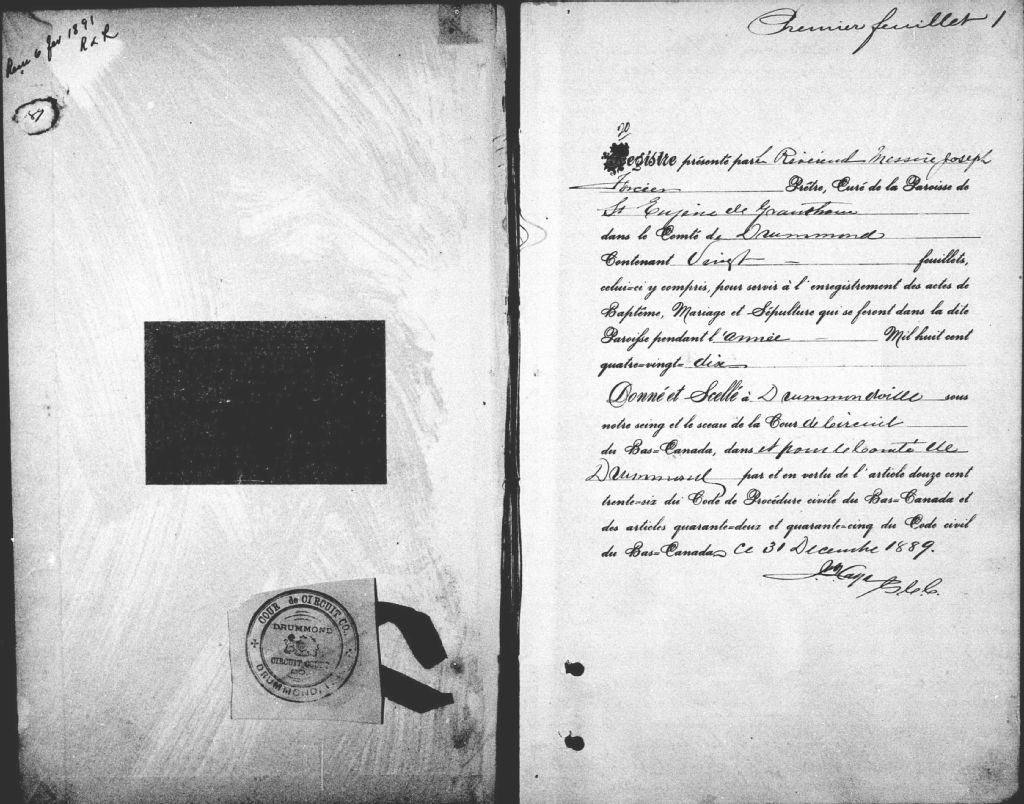 Recu 6 fev 1891
R & R
87
COUR de CIRCUIT CO.
DRUMMOND
CIRCUIT COURT
DRUMMOND,
Premier feuillet 1
20
Registre présenté par le Révérend Messire Joseph
Forcier Prêtre, Curé de la Paroisse de
St Eugène de Grantham
dans le Comté de Drummond
Contenant Vingt feuillets,
celui-ci y compris, pour servir à l'enregistrement des actes de
Baptême, Mariage et Sépulture qui se feront dans la dite
Paroisse pendant l'année Mil huit cent
quatre-vingt-dix
Donné et Scellé à Drummondville sous
notre seing et le sceau de la Cour de Circuit
du Bas-Canada, dans et pour le Comté de
Drummond par et en vertu de l'article douze cent
trente-six du Code de Procédure civile du Bas-Canada et
des articles quarante-deux et quarante-cinq du Code civil
du Bas-Canada, ce 31 Decembre 1889.